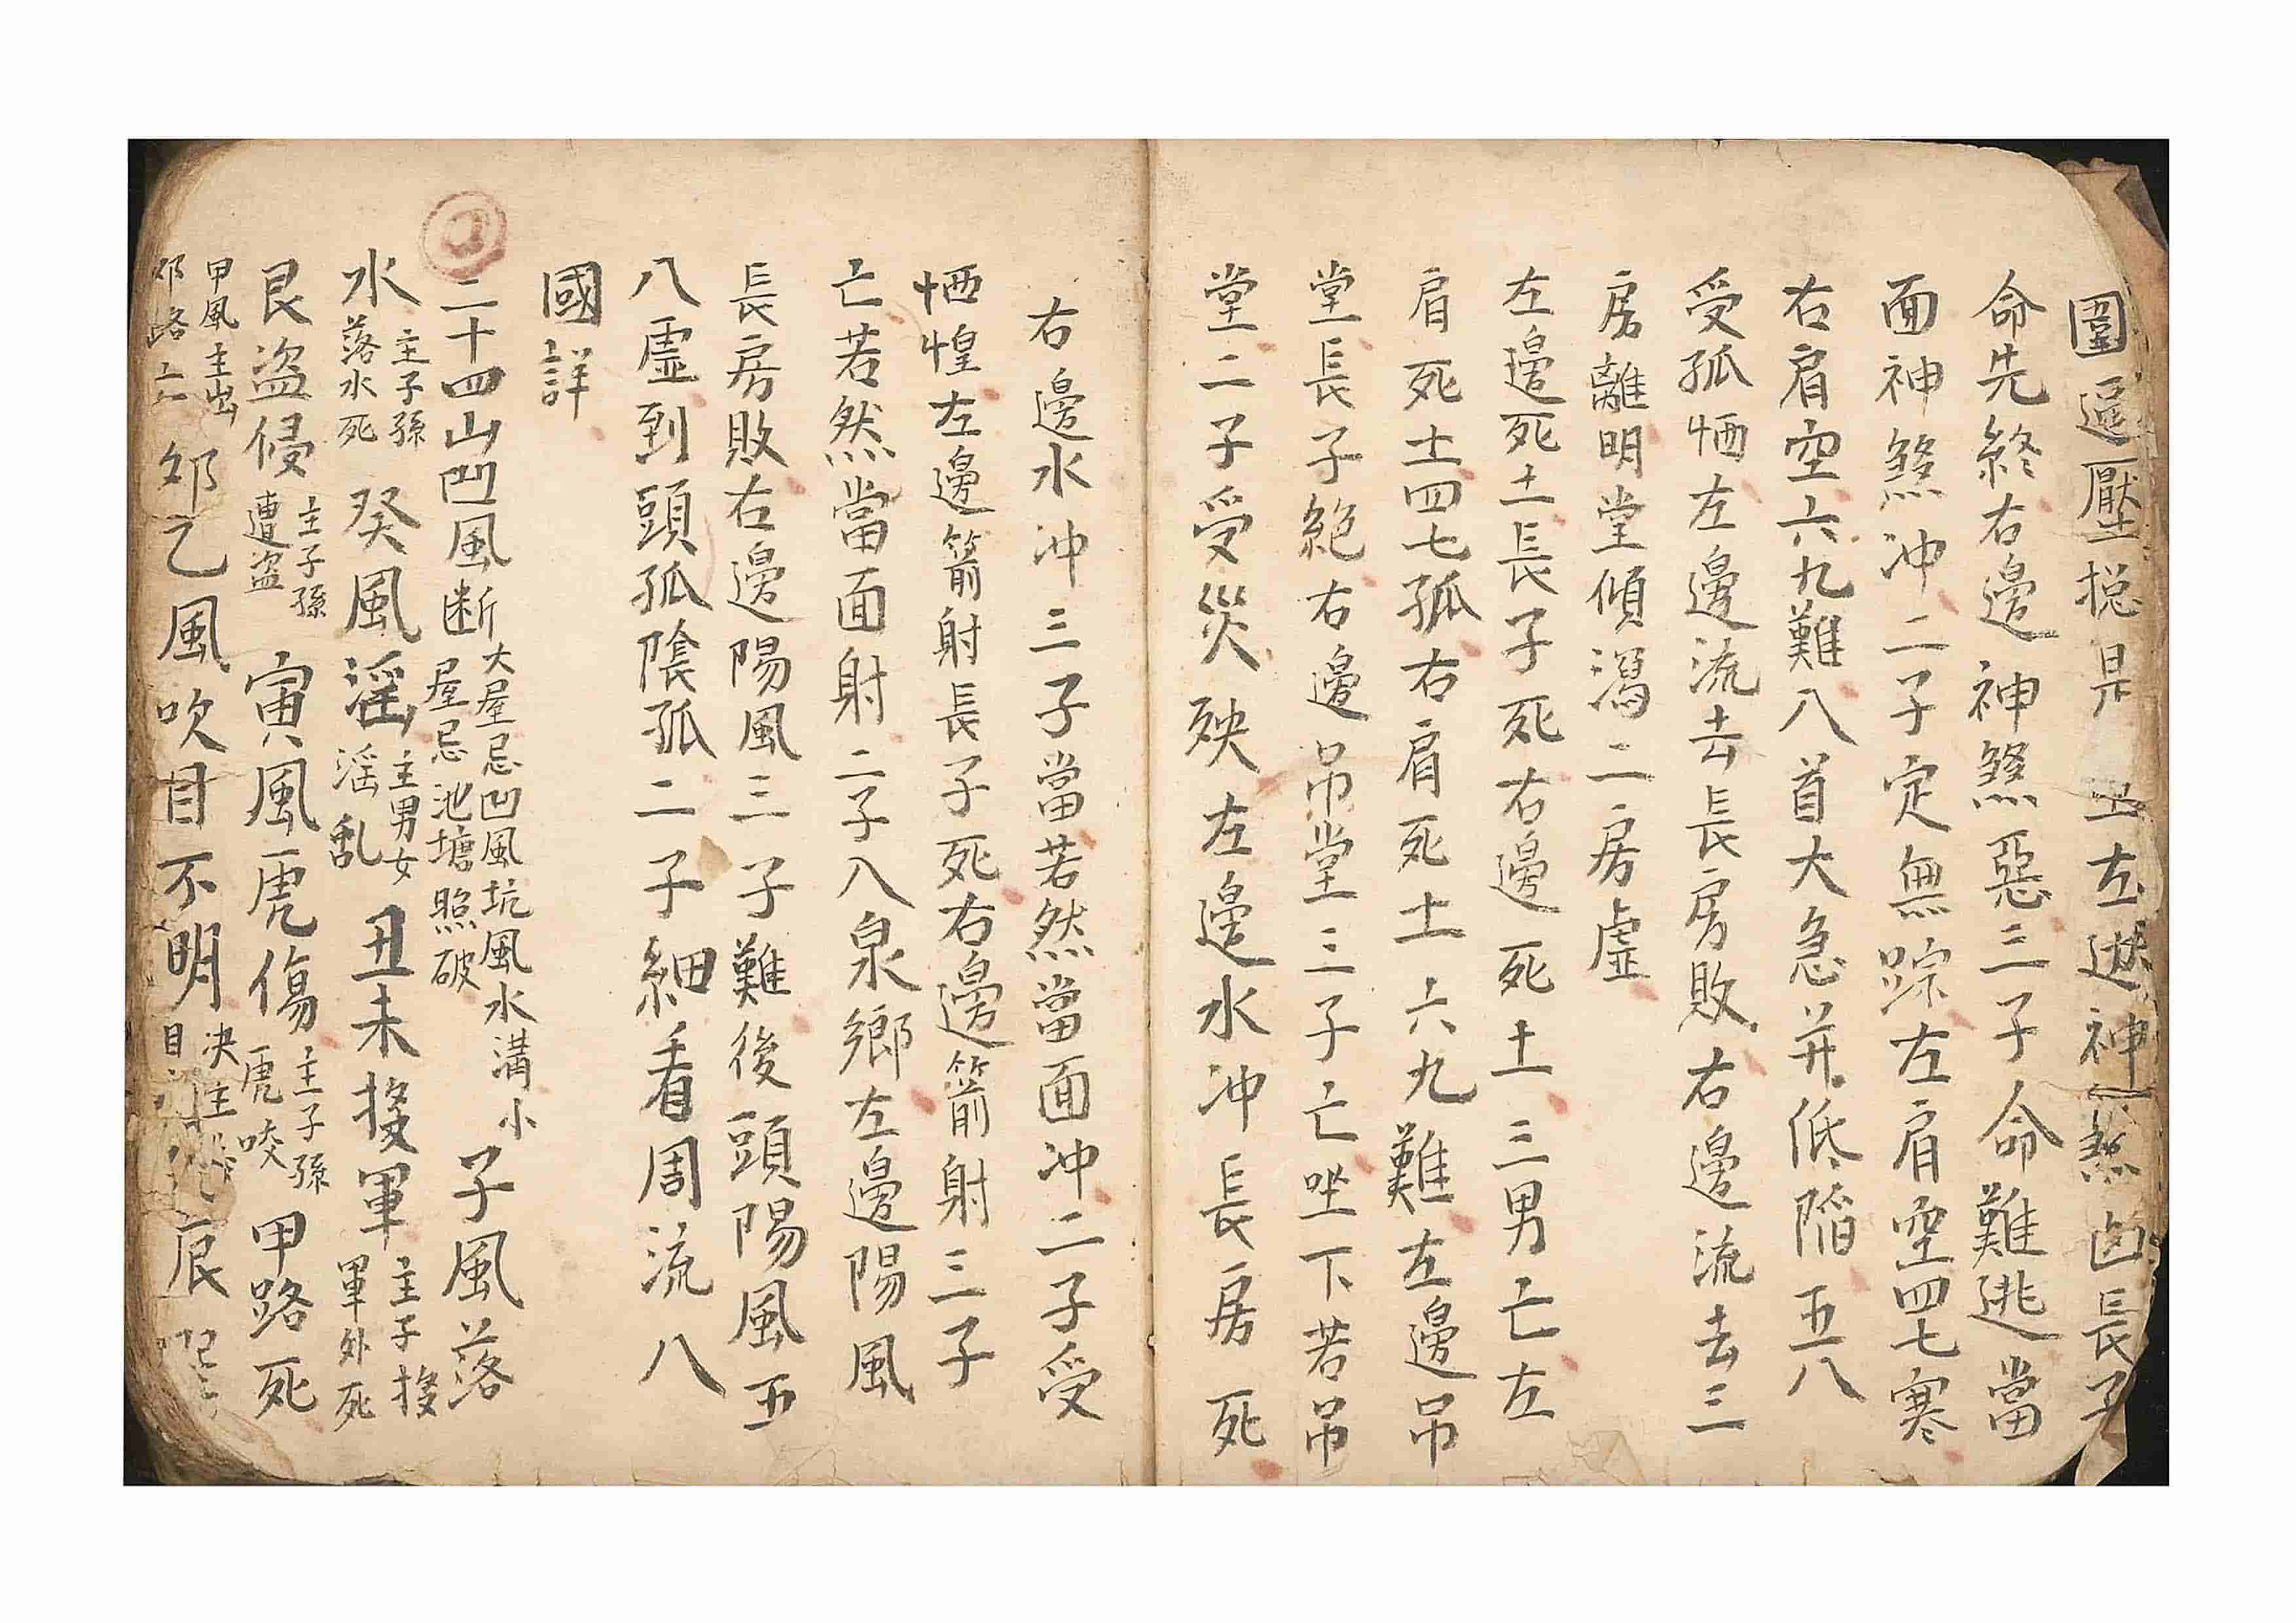 圍逼壓搃是 左邊神煞凶長子
命先終右邊神煞惡三子命難逃當
面神煞冲二子定無踪左肩空四七寒
右肩空六九難八首大急并低陷五八
受孤恓左邊流去長房敗右邊流去三
房離明堂傾瀉二房虛
左邊死土長子死右邊死土三男亡左
肩死土四七孤右肩死土六九難左邊吊
堂長子絕右邊吊堂三子亡坐下若吊
堂二子受災殃左邊水冲長房死
右邊水冲三子當若然當面冲二子受
恓惶左邊箭射長子死右邊箭射三子
亡若然當面射二子八泉鄉左邊陽風
長房敗右邊陽風三子難後頭陽風五
八虛到頭孤陰孤二子細看周流八
國詳
二十四山凹風断
大屋忌凹風坑風水溝小
屋忌池塘照破
子風落
水
主子孫
落水死
癸風淫
主男女
淫乱
丑未投軍
主子投
軍外死
艮盗侵
主子孫
遭盗
寅風虎傷
主子孫
虎咬
甲路死
甲風主出
邜路亡
邜乙風吹目不明
决主
目
辰